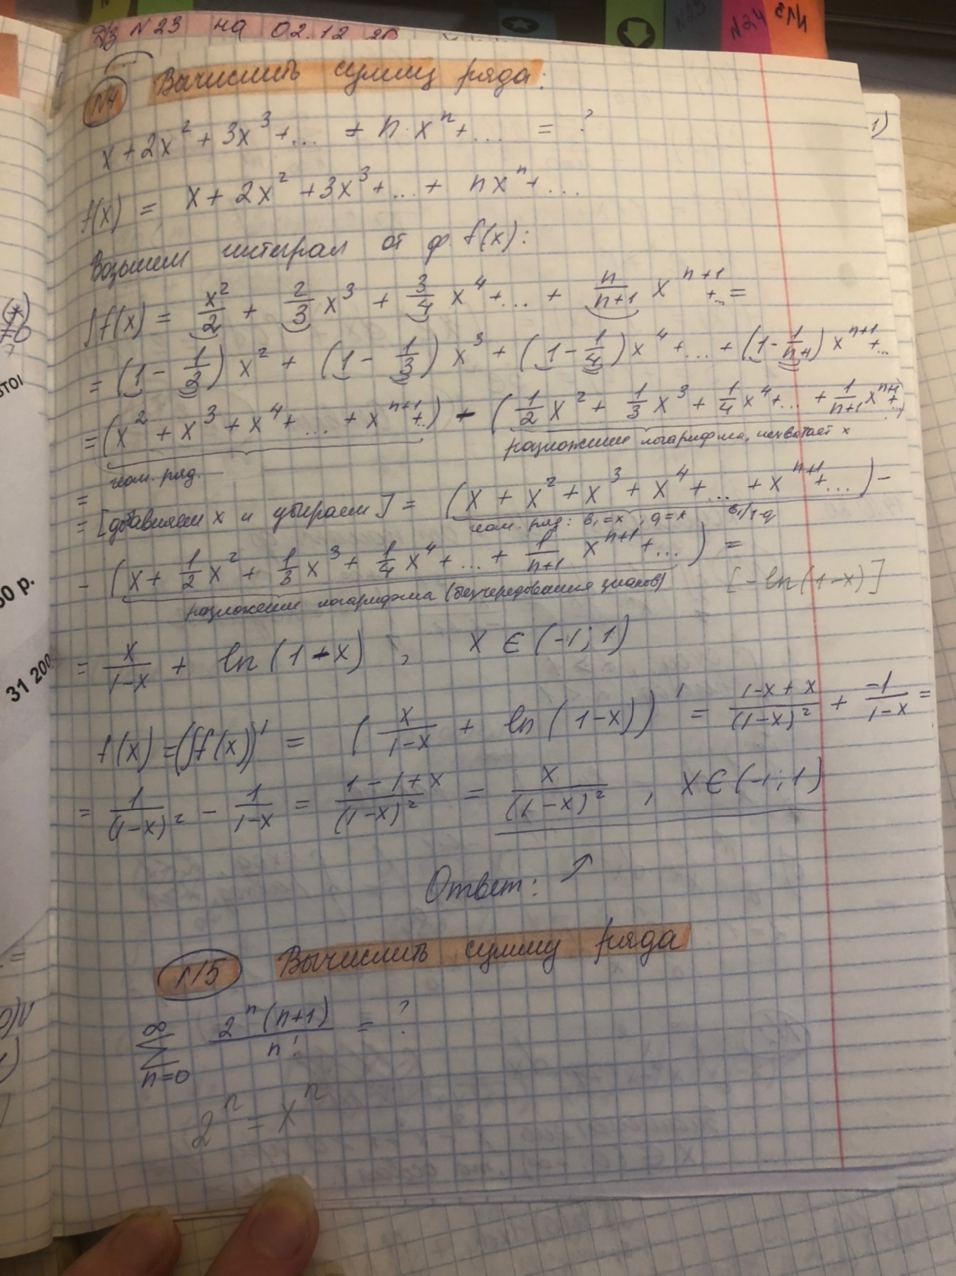 ДЗ N23 на 02.12.20
N4 Вычислить сумму ряда:
x + 2x² + 3x³ + ... + n·xⁿ + ... = ?
f(x) = x + 2x² + 3x³ + ... + nxⁿ + ...
Возьмем интеграл от ф. f(x):
∫f(x) = x²/2 + 2/3 x³ + 3/4 x⁴ + ... + n/(n+1) xⁿ⁺¹ + ... =
= (1 - 1/2) x² + (1 - 1/3) x³ + (1 - 1/4) x⁴ + ... + (1 - 1/(n+1)) xⁿ⁺¹ + ...
= (x² + x³ + x⁴ + ... + xⁿ⁺¹ + ...) - (1/2 x² + 1/3 x³ + 1/4 x⁴ + ... + 1/(n+1) xⁿ⁺¹ + ...)
геом. ряд. разложение логарифма, не хватает x
= [добавляем x и убираем] = (x + x² + x³ + x⁴ + ... + xⁿ⁺¹ + ...) -
геом. ряд: b₁=x, q=x b₁/1-q
- (x + 1/2 x² + 1/3 x³ + 1/4 x⁴ + ... + 1/(n+1) xⁿ⁺¹ + ...) =
разложение логарифма (без чередования знаков) [-ln(1-x)]
= x/(1-x) + ln(1-x), x ∈ (-1; 1)
f(x) = (∫f(x))' = (x/(1-x) + ln(1-x))' = (1-x+x)/(1-x)² + (-1)/(1-x) =
= 1/(1-x)² - 1/(1-x) = (1-1+x)/(1-x)² = x/(1-x)², x ∈ (-1; 1)
Ответ: ↗
N5 Вычислить сумму ряда
∞
∑ 2ⁿ(n+1)/n! = ?
n=0
2ⁿ = xⁿ
31 200
N23
N24